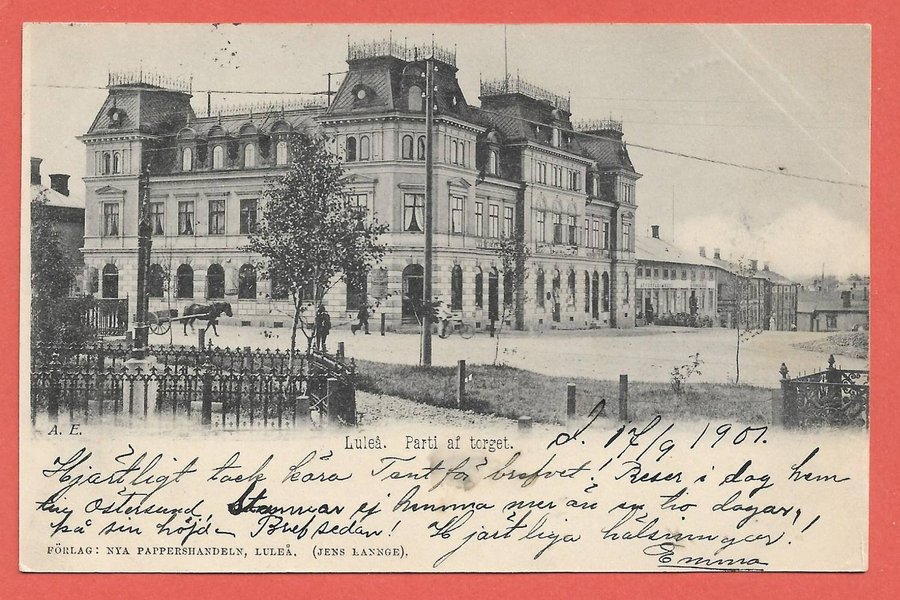 A. E.
Luleå. Parti af torget.
d. 17/9 1901.
Hjärtligt tack kära Tant för brefvet! Reser i dag hem
till Östersund, Stannar ej hemma mer än en tio dagar,
på sin höjd. Bref sedan! Hjärtliga hälsningar!
Emma
FÖRLAG: NYA PAPPERSHANDELN, LULEÅ. (JENS LANNGE).